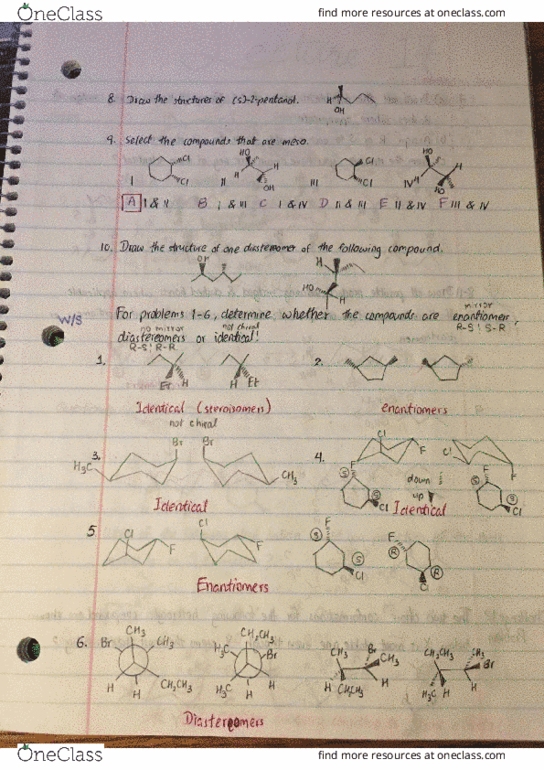 OneClass
find more resources at oneclass.com
8. Draw the structures of (s)-2-pentanol.
H
OH
9. Select the compounds that are meso.
HO
HO
Cl
Cl
H
H
OH
Cl
Cl
H
H
HO
I
II
III
IV
A I & II B I & III C I & IV D II & III E II & IV F III & IV
10. Draw the structure of one diastereomer of the following compound.
OH
H
HO
H
mirror
W/S
For problems 1-6, determine whether the compounds are enantiomers,
R-S; S-R
no mirror
not chiral
diastereomers or identical!
R-S; R-R
1.
2.
Et
H
H
Et
Identical (steroisomers)
enantiomers
not chiral
3.
Br
Br
H₃C
CH₃
Identical
4.
Cl
F
Cl
F
F
S
S
Cl
down &
up
F
S
S
Cl
Identical
5.
Cl
F
Cl
F
Enantiomers
F
S
S
Cl
F
R
R
Cl
6.
CH₃
Br
CH₃
H
H
CH₂CH₃
CH₂CH₃
H₃C
Br
H₃C
H
H
CH₃
Br
CH₃
H
CH₂CH₃
H
CH₂CH₃
CH₃
Br
H₃C
H
H
Diastereomers
OneClass
find more resources at oneclass.com